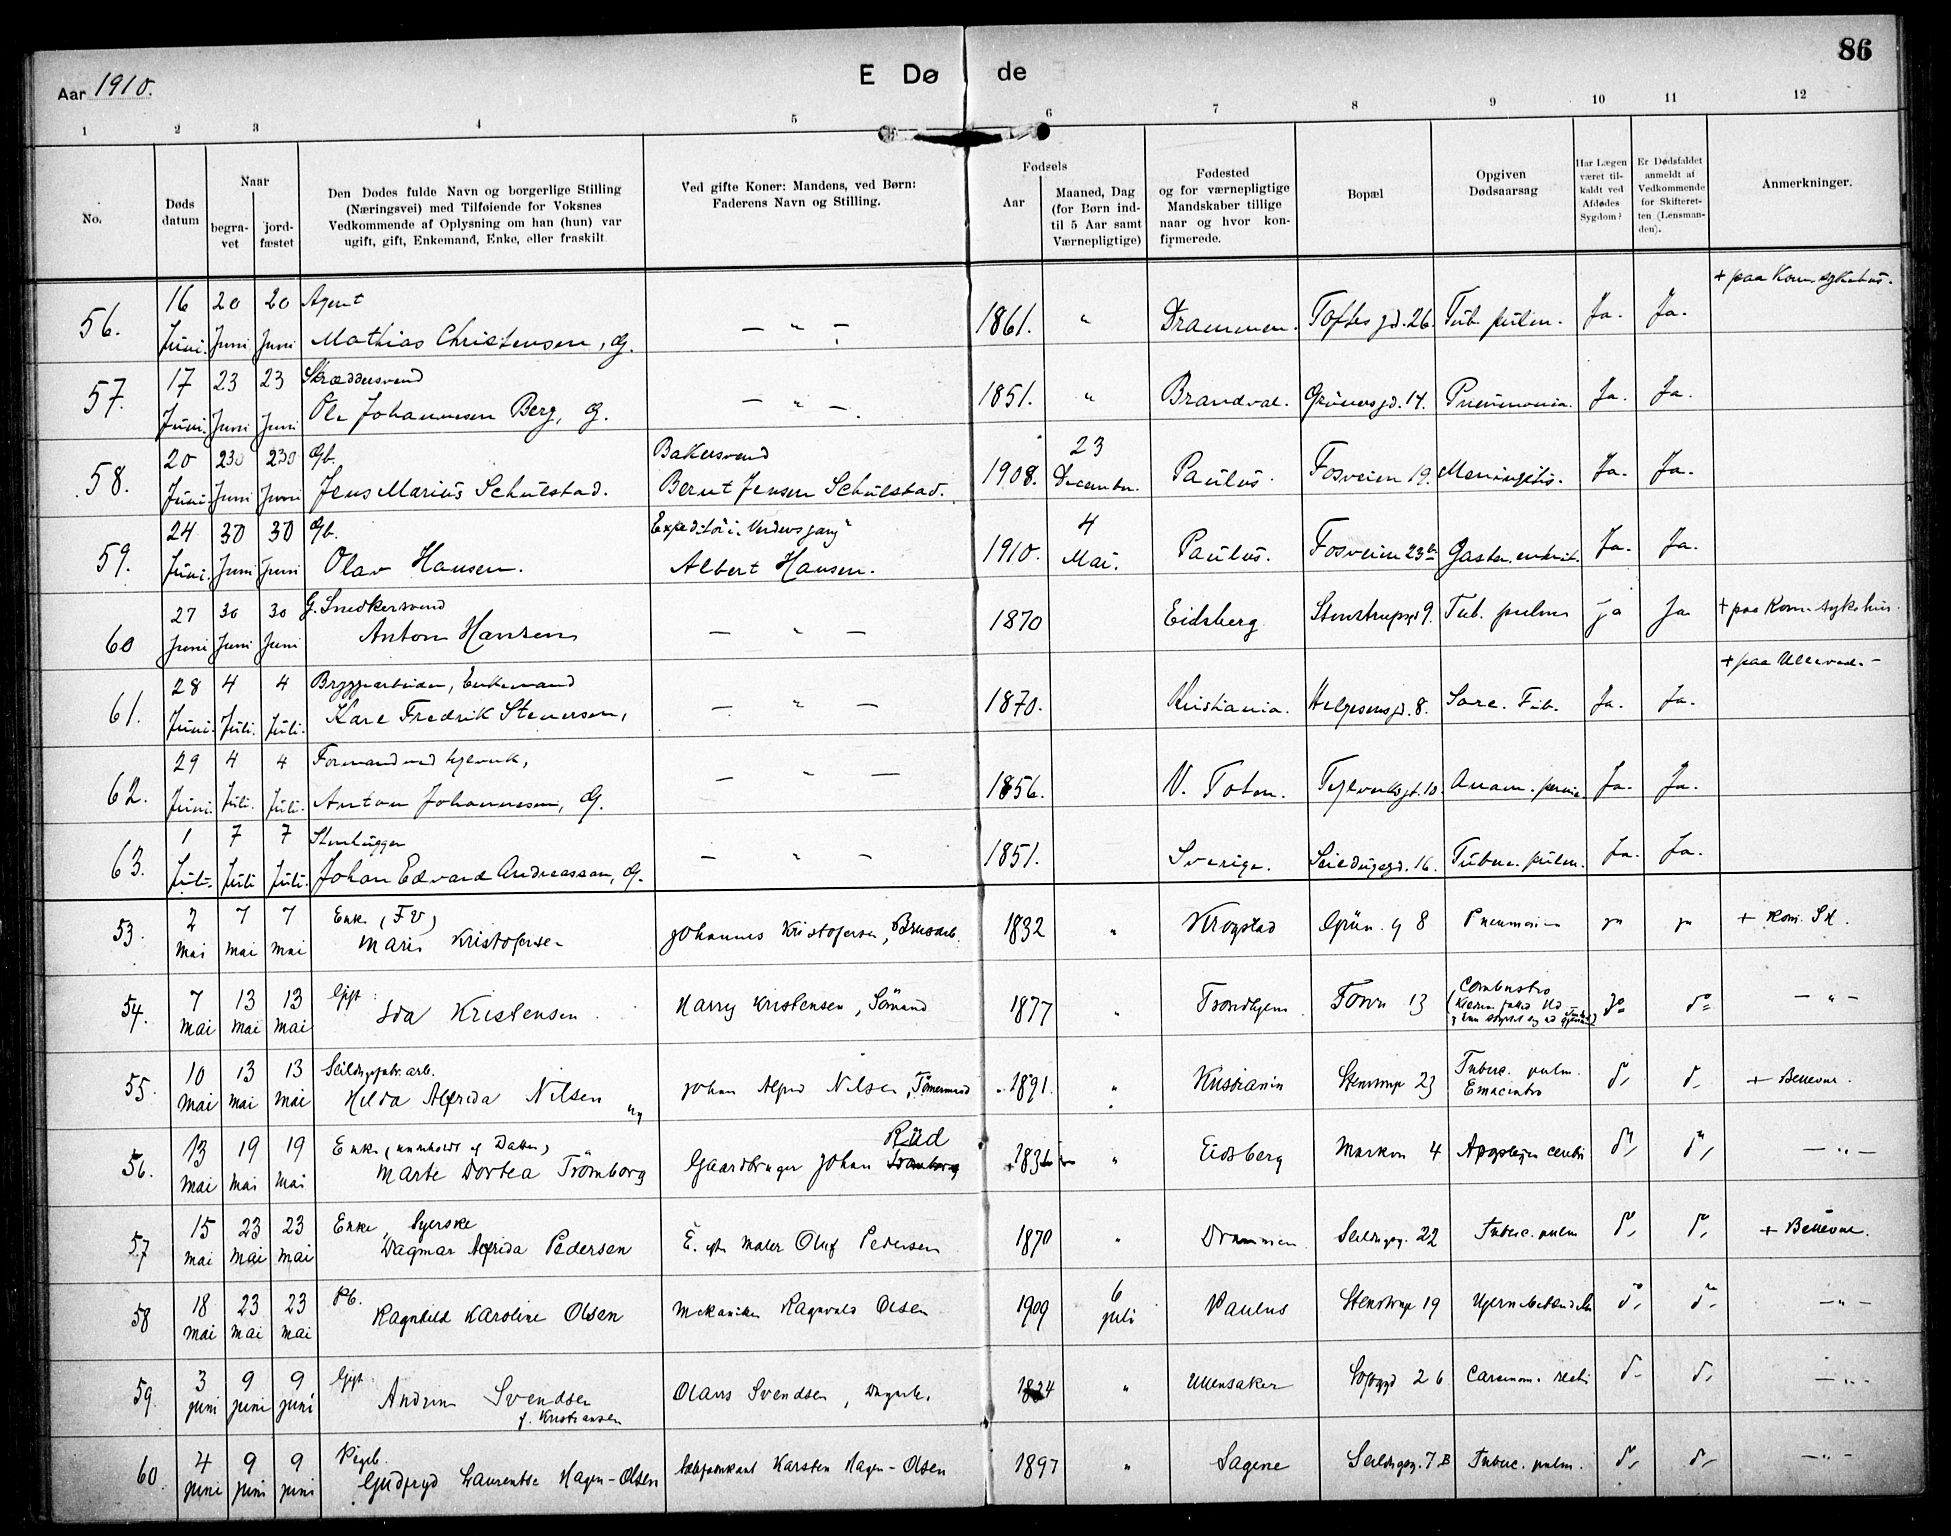 86
Aar 1910.
E Døde
1 2 3 4 5 6 7 8 9 10 11 12
No.
Døds datum
Naar
begra-vet
jord-fæstet
Den Dødes fulde Navn og borgerlige Stilling
(Næringsvei) med Tilføiende for Voksnes
Vedkommende af Oplysning om han (hun) var
ugift, gift, Enkemand, Enke, eller fraskilt
Ved gifte Koner: Mandens, ved Børn:
Faderens Navn og Stilling.
Fødsels
Aar
Maaned, Dag
(for Børn ind-
til 5 Aar samt
Værnepligtige)
Fødested
og for værnepligtige
Mandskaber tillige
naar og hvor kon-
firmerede.
Bopæl
Opgiven
Dødsaarsag
Har Lægen
været til-
kaldt ved
Afdødes
Sygdom?
Er Dødsfaldet
anmeldt af
Vedkommende
for Skifteret-
ten (Lensman-
den).
Anmerkninger.
16 20 20 Agent + paa Kom. sykehus.
56. Juni. Juni Juni Mathias Christensen, G. — " — 1861. " Drammen. Toftes gd. 26. Tub. pulm. Ja. Ja.
17 23 23 Skræddersvend
57. Juni. Juni Juni Ole Johannesen Berg, G. — " — 1851. " Brandval. Grünersgd. 14. Pneumonia. Ja. Ja.
20 230 230 Gb. Bakersvend 23
58. Juni Juni Juni Jens Marius Schulstad. Bernt Jensen Schulstad. 1908. December. Paulus. Fosveien 19. Meningitis. Ja. Ja.
24 30 30 Gb. Expeditör i "Verdensgang" 4
59. Juni. Juni Juni Olav Hansen. Albert Hansen. 1910. Mai. Paulus. Fosveien 23b Gastro enterit. Ja. Ja.
27 30 30 G. Snedkersvend
60 Juni Juni Juni Anton Hansen — " — 1870 Eidsberg Stenstrupgd 9. Tub. pulm ja Ja + paa Kom. sykehus.
28 4 4 Bryggearbeider, Enkemand + paa Ullevaal.
61. Juni. Juli. Juli. Karl Fredrik Stenersen, — " — 1870. Kristiania. Helgesensgd. 8. Sarc. Tub. Ja. Ja.
29 4 4 Formand ved
62. Juni. Juli. Juli. Anton Johannesen, G. — " — 1856. V. Toten. Anæm. pernic Ja. Ja.
1 7 7 Stenhugger
63. Juli. Juli Juli. Johan Edvard Andreassen, G. — " — 1851. Sverige. Seildugsgd. 16. Tuberc. pulm. Ja. Ja.
2 7 7 Enke (FV)
53. mai mai mai Marie Kristofersen Johannes Kristofersen, 1832 " Krogstad Grün. g 8 Pneumonien ja ja + Kom. SH.
7 13 13 Gift Combustio
54. mai mai mai Ida Kristensen Harry Kristensen, Sömand 1877 " Trondhjem Fosvn 13 do do — " —
10 13 13 Seildugsfabr. arb. Tuberc. pulm.
55. mai mai mai Hilda Alfrida Nilsen ug Johan Alfred Nilsen, Tömermand 1891. " Kristiania Stenstrup 23 Emaciatio do do + Bellevue.
13 19 19 Enke (underholdt af Datter) Rüd
56. mai mai mai Marte Dortea Trömborg Gaardbruger Johan Tromborg " Eidsberg Markvn 4 Apoplexia cerebri do do — " —
15 23 23 Enke, Syerske
57 mai mai mai Dagmar Alfrida Pedersen E. eft. Maler Oluf Pedersen 1870 " Drammen Seildugsg. 22 Tuberc. pulm do do + Bellevue.
18 23 23 Pb. 6
58 mai mai mai Ragnhild Karoline Olsen Mekaniker Ragnvald Olsen 1909 juli Paulus Stenstrup 19 do do — " —
3 9 9 Gift
59. juni juni juni Andrea Svendsen Olaus Svendsen, Dagarb. " Ullensaker Sofigd 26 Carcinom. recti do do — " —
f. Kristiansen
4 9 9 Pigeb.
60. juni juni juni Gudfryd Laurentse Hagen-Olsen Sæbefabrikant Karsten Hagen-Olsen 1897 " Sagene Seildugsg. 7B Tuberc. pulm. do do — " —